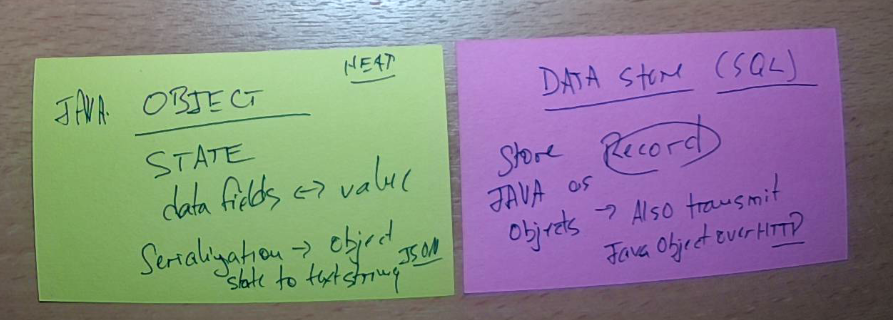 HEAP
JAVA. OBJECT
STATE
data fields <-> value
Serialization → Object
state to text string JSON
DATA Store (SQL)
Store Record
JAVA as
Objects → Also transmit
Java Object over HTTP